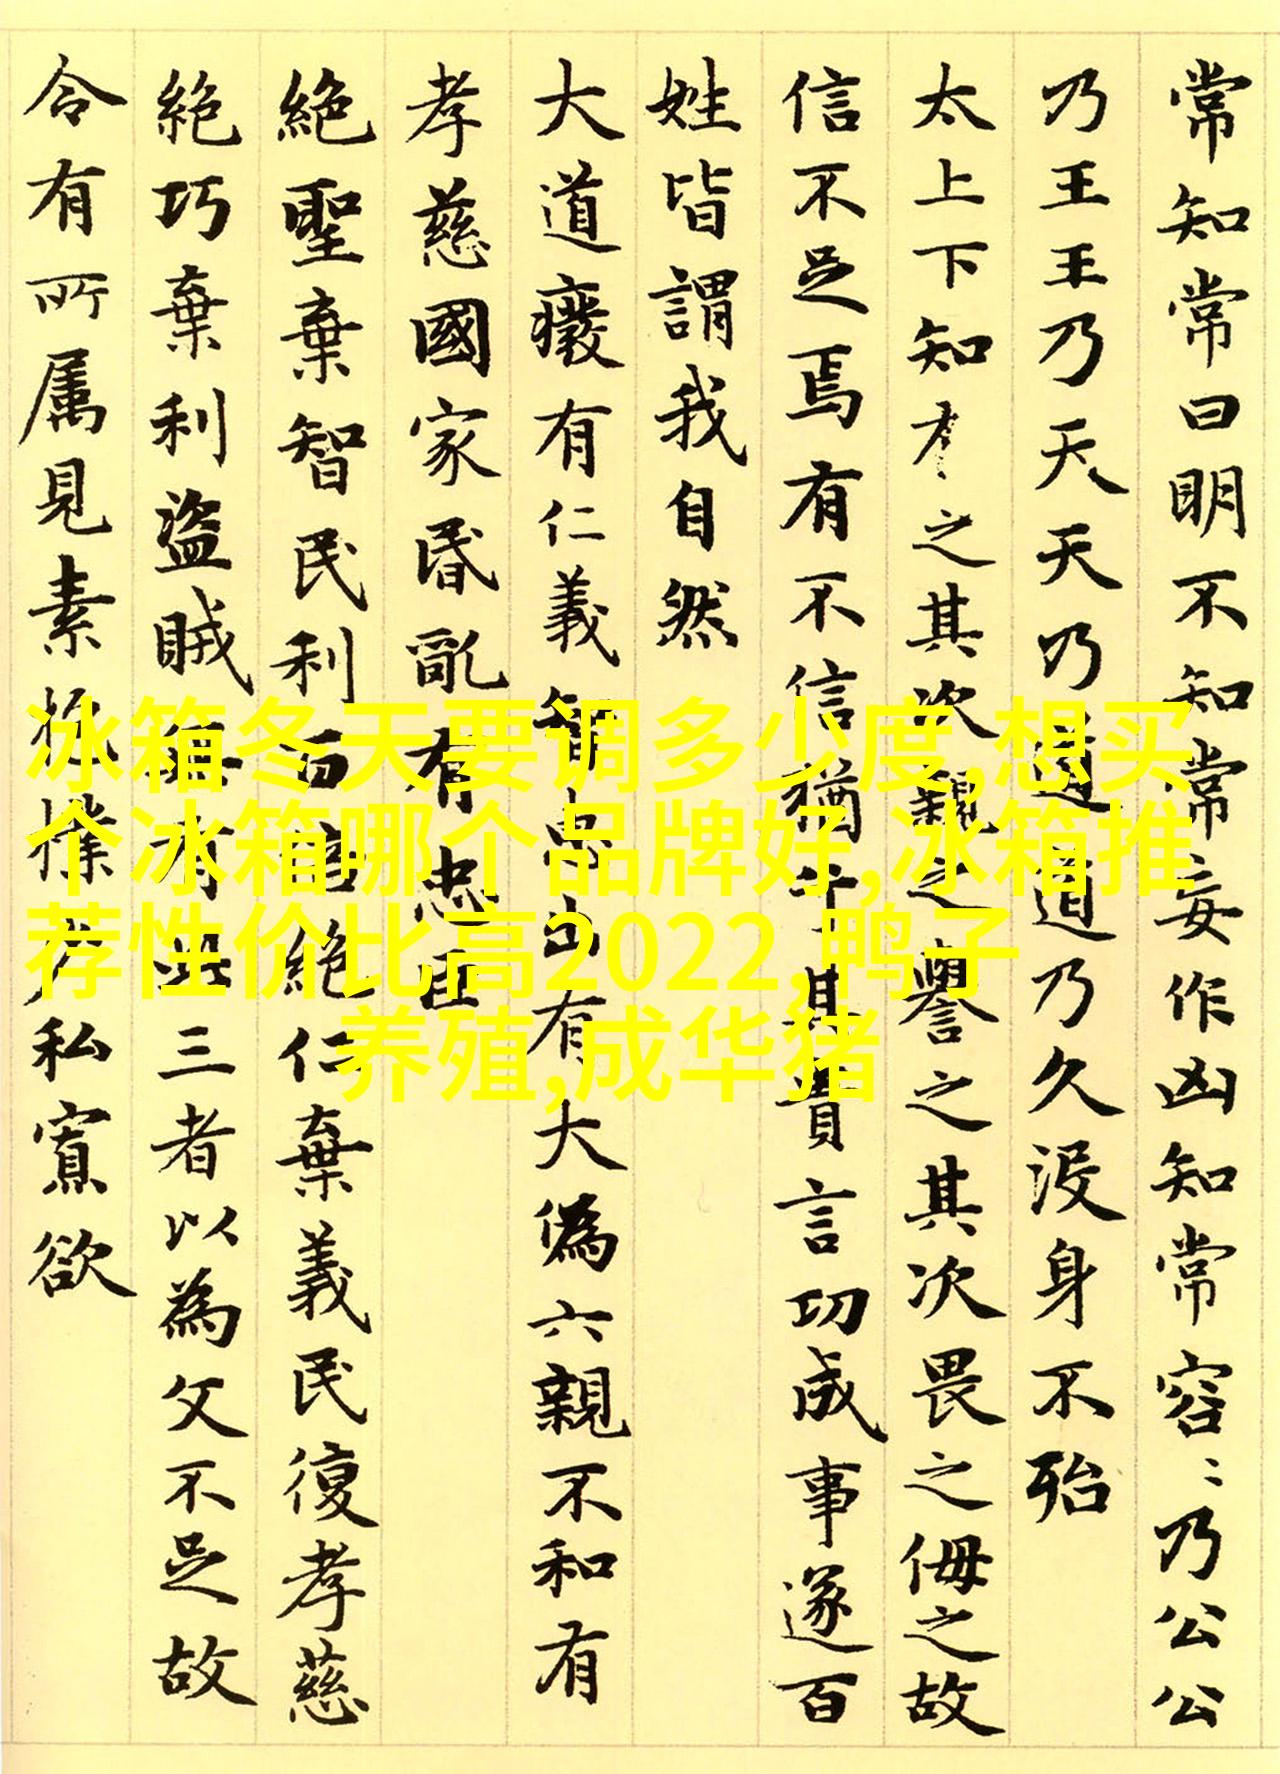 常知常曰明不知常妄作凶知常容〻乃公公
乃王王乃天天乃道道乃久沒身不殆
太上下知有之其次親之譽之其次畏之侮之故
信不足焉有不信猶其貴言功成事遂百
姓皆謂我自然
大道癈有仁義智惠出有大偽六親不和有
孝慈國家昏亂有忠臣
絕聖棄智民利百倍絕仁棄義民復孝慈
絕巧棄利盜賊無有此三者以為文不足故
令有所属見素抱樸少私寡欲
冰箱冬天要调多少度,想买
个冰箱哪个品牌好,冰箱推
荐性价比高2022,鸭子
养殖,成华猪